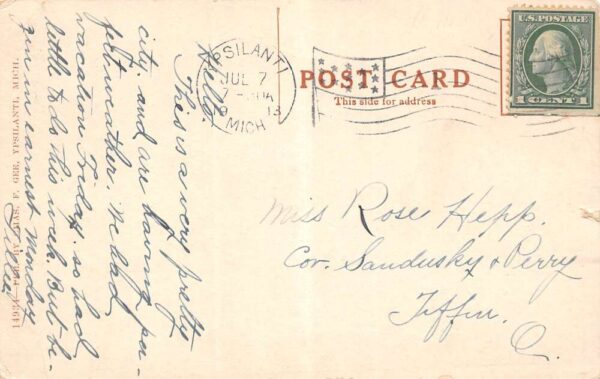 YPSILANTI
JUL 7
MICH
POST CARD
This side for address
U.S. POSTAGE
1 CENT 1
Hello.
This is a very pretty
city and are having per-
fect weather. We had
vacation Friday. so had
little to do this week But be-
gin in earnest Monday
Tillie
Miss Rose Hepp.
Cor. Sandusky & Perry
Tiffin.
O.
PUB. BY CHAS. F. GEE, YPSILANTI, MICH.